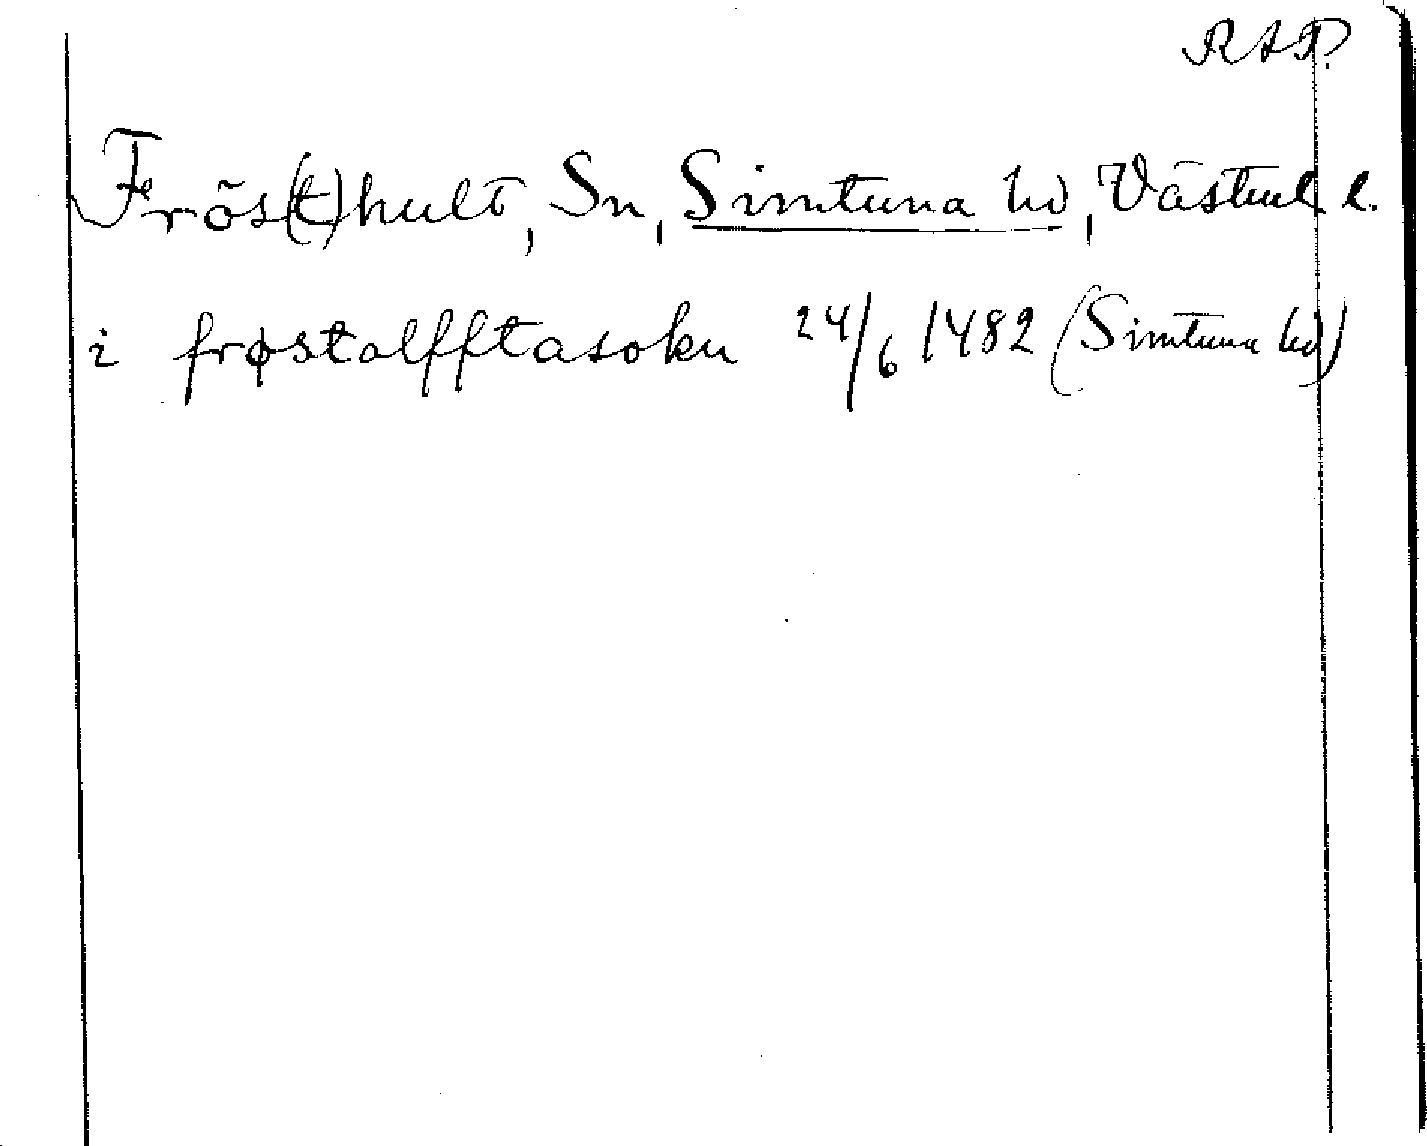 RAP.
Frös(t)hult, Sn, Simtuna hd, Västml. l.
i frøstolfftasokn 24/6 1482 (Simtuna hd)